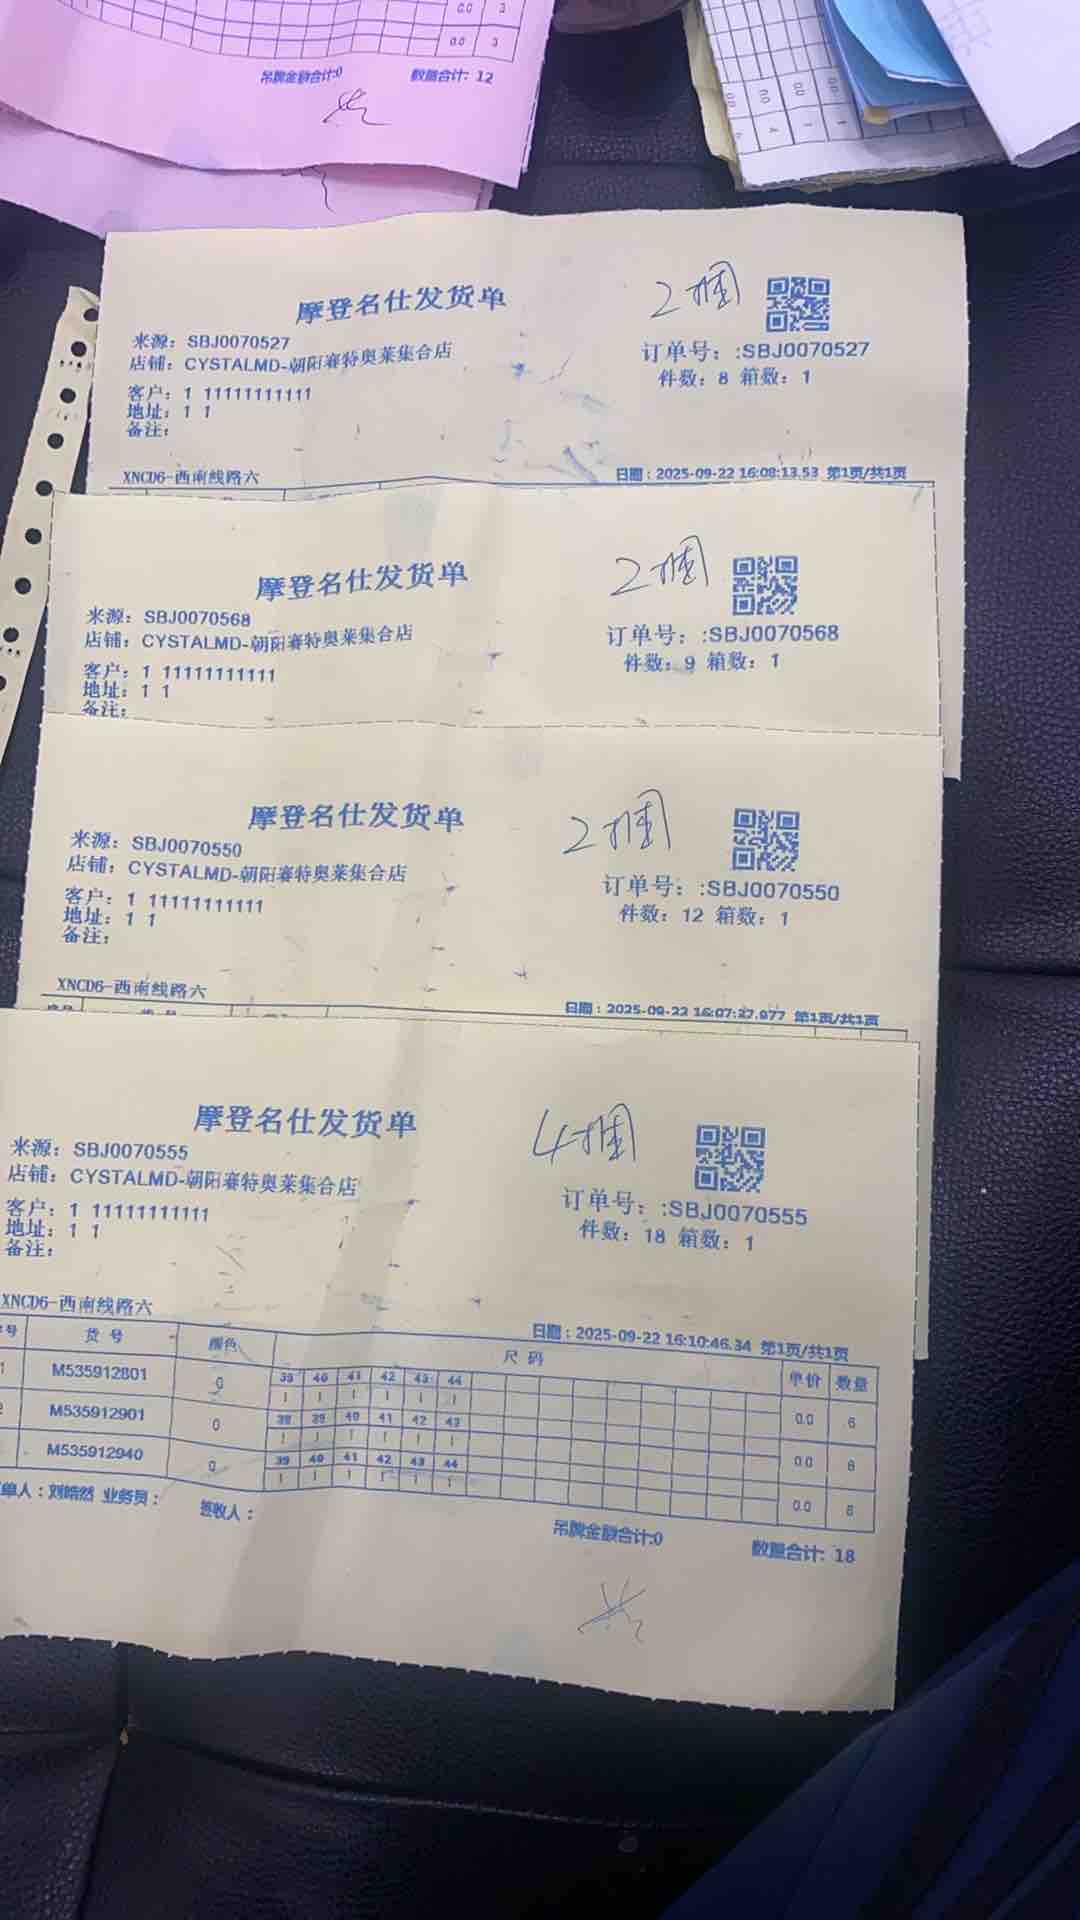 0.0 3
0.0 3
吊牌金额合计:0 数量合计: 12
摩登名仕发货单
2捆
来源: SBJ0070527
店铺: CYSTALMD-朝阳赛特奥莱集合店
客户: 1 11111111111
地址: 1 1
备注:
订单号: :SBJ0070527
件数: 8 箱数: 1
XNCD6-西南线路六
日期:2025-09-22 16:08:13.53 第1页/共1页
摩登名仕发货单
2捆
来源: SBJ0070568
店铺: CYSTALMD-朝阳赛特奥莱集合店
客户: 1 11111111111
地址: 1 1
备注:
订单号: :SBJ0070568
件数: 9 箱数: 1
摩登名仕发货单
2捆
来源: SBJ0070550
店铺: CYSTALMD-朝阳赛特奥莱集合店
客户: 1 11111111111
地址: 1 1
备注:
订单号: :SBJ0070550
件数: 12 箱数: 1
XNCD6-西南线路六
日期:2025-09-22 16:07:27.977 第1页/共1页
摩登名仕发货单
4捆
来源: SBJ0070555
店铺: CYSTALMD-朝阳赛特奥莱集合店
客户: 1 11111111111
地址: 1 1
备注:
订单号: :SBJ0070555
件数: 18 箱数: 1
XNCD6-西南线路六
日期:2025-09-22 16:10:46.34 第1页/共1页
号 货号 颜色 尺码 单价 数量
M535912801 0 39 40 41 42 43 44 0.0 6
1 1 1 1 1 1
M535912901 0 38 39 40 41 42 43 0.0 6
1 1 1 1 1 1
M535912940 0 39 40 41 42 43 44 0.0 6
1 1 1 1 1 1
单人:刘皓然 业务员: 签收人:
吊牌金额合计:0 数量合计: 18